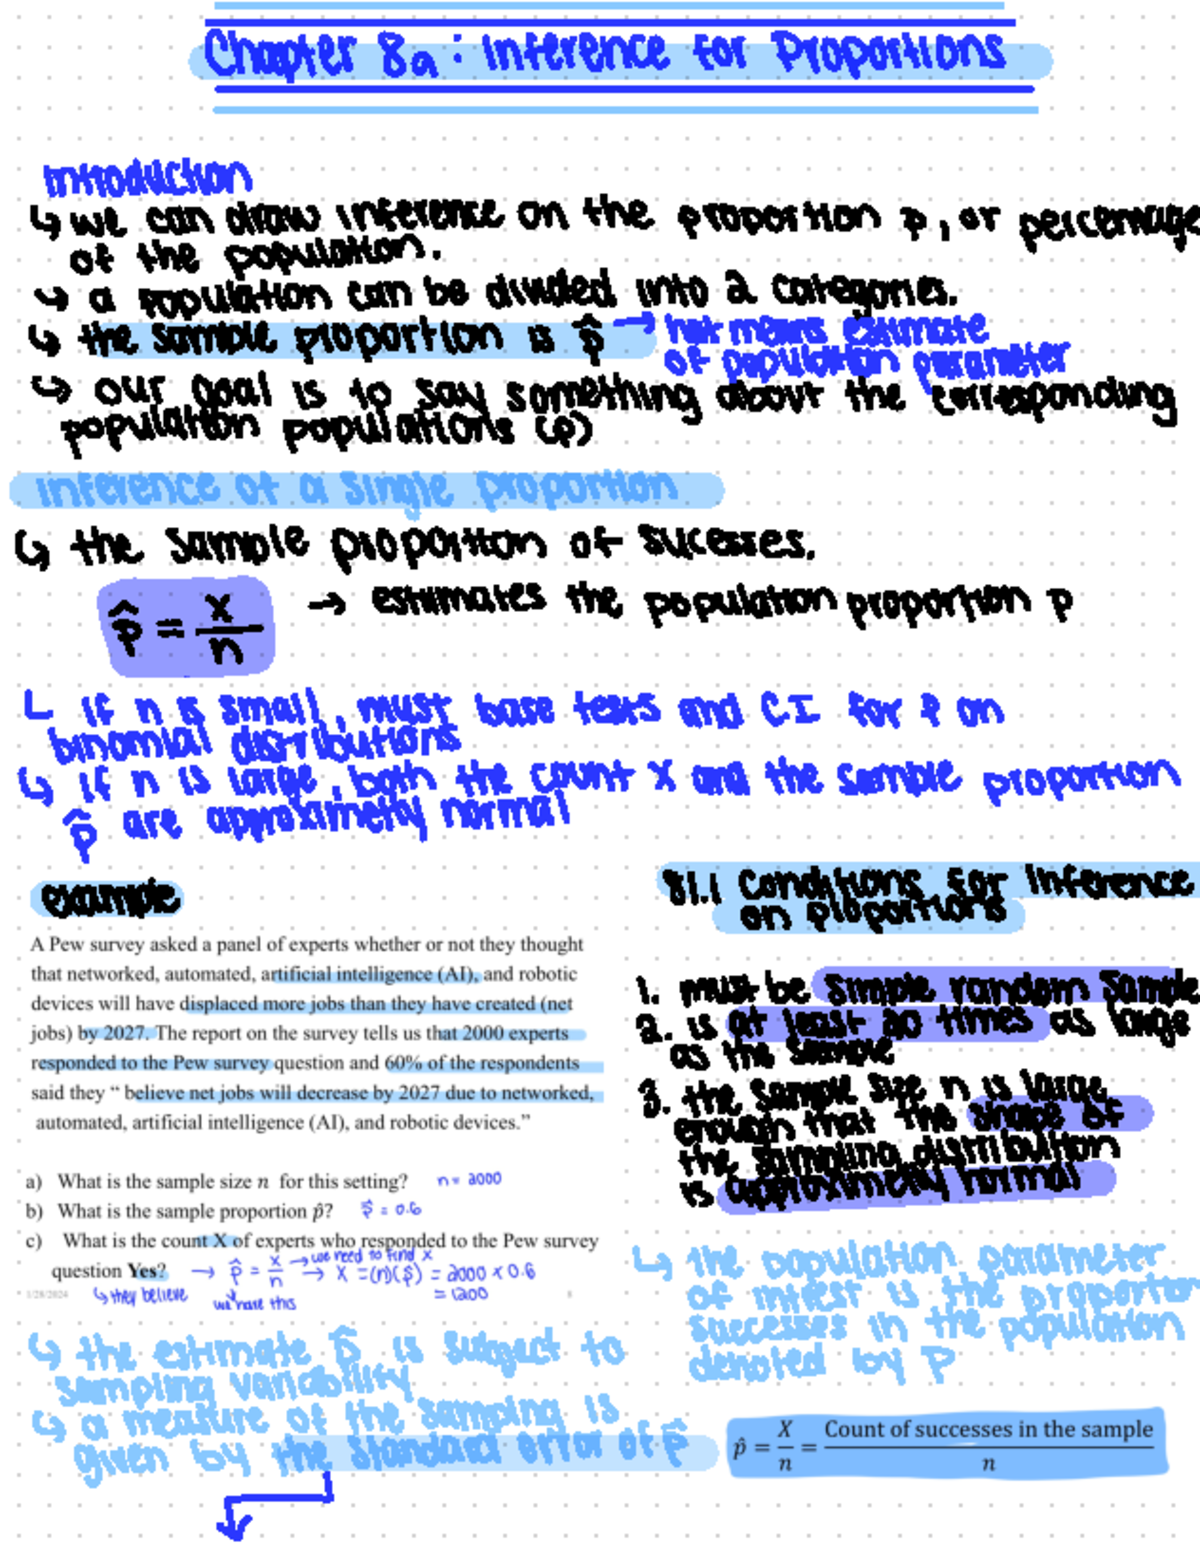 Chapter 8a: Inference for Proportions
introduction
↳ we can draw inference on the proportion p, or percentage
of the population.
↳ a population can be divided into 2 categories.
↳ the sample proportion is p̂ → hat means estimate
of population parameter
↳ our goal is to say something about the corresponding
population populations (p)
inference of a single proportion
↳ the sample proportion of sucesses.
p̂ = x/n → estimates the population proportion p
↳ if n is small, must base tests and CI for p on
binomial distributions
↳ if n is large, both the count X and the sample proportion
p̂ are approximetly normal
example
A Pew survey asked a panel of experts whether or not they thought
that networked, automated, artificial intelligence (AI), and robotic
devices will have displaced more jobs than they have created (net
jobs) by 2027. The report on the survey tells us that 2000 experts
responded to the Pew survey question and 60% of the respondents
said they “ believe net jobs will decrease by 2027 due to networked,
automated, artificial intelligence (AI), and robotic devices.”
a) What is the sample size n for this setting? n = 2000
b) What is the sample proportion p̂? p̂ = 0.6
c) What is the count X of experts who responded to the Pew survey
question Yes? → p̂ = x/n → we need to find x
→ X = (n)(p̂) = 2000 × 0.6
= 1200
↳ they believe
we have this
1/28/2024
↳ the estimate p̂ is subject to
sampling variability
↳ a measure of the sampling is
given by the standard error of p̂
81.1 Conditions for Inference
on proportions
1. must be simple random sample
2. is at least 20 times as large
as the sample
3. the sample size n is large
enough that the shape of
the sampling distribution
is approximetly normal
↳ the population parameter
of intrest is the proportion
successes in the population
denoted by P
p̂ = X/n = Count of successes in the sample/n